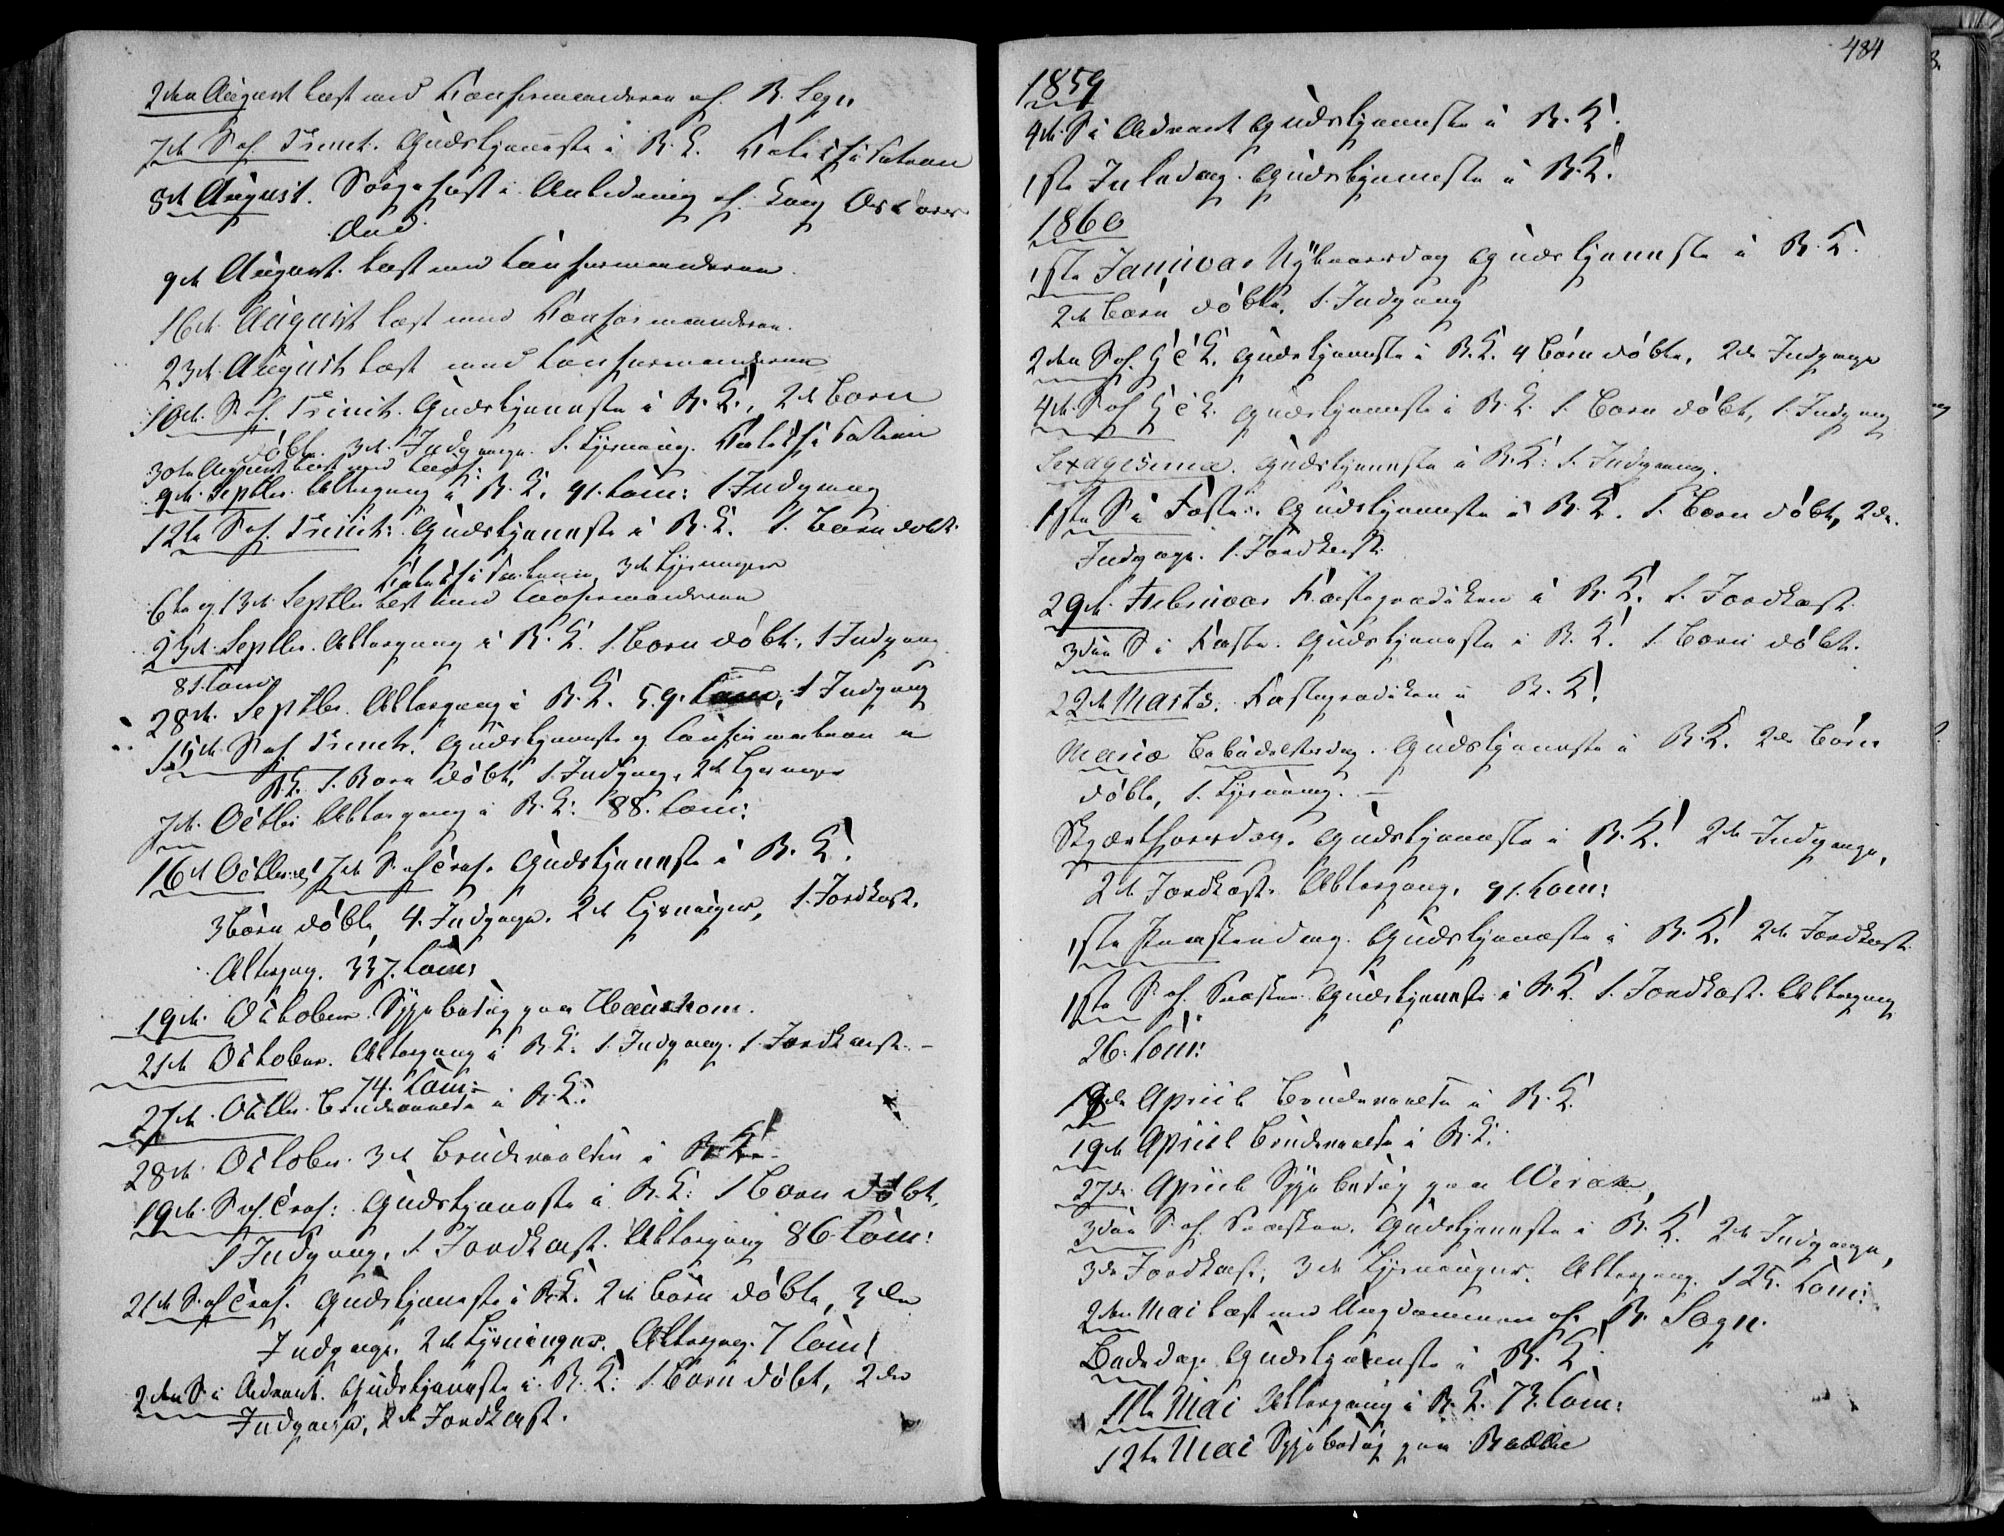 2den August læst med Konfirmanderne af B. Sogn
7de S. ef. Trinit. Gudstjeneste i B.K. Katekisation
8de August. Sørgefest i Anledning af Kong Oscars
Død.
9de August. læst med Confirmanderne.
16de August læst med Konfirmanderne.
23de August læst med Confirmanderne
10de S. ef. Trinit. Gudstjeneste i B.K., 2de Børn
døbte. 3de Indgange. 1. Lysning. Katekisation
30te August læst med Conf:
9de Septbr. Altergang i B.K. 91. Com: 1 Indgang
12te S. ef. Trinit: Gudstjeneste i B.K. 1. Barn døbt.
Katekisation, 3de Lysninger
6te og 13de Septbr læst med Confirmanderne
23de Septbr. Altergang i B.K. 1 Barn døbt, 1 Indgang.
81. Com:
28de Septbr. Altergang i B.K. 59. Com, 1 Indgang
15de S. ef. Trinit. Gudstjeneste og Confirmation i
BK. 1. Barn døbt, 1. Indgang, 2de Lysninger
7de Octbr Altergang i B.K: 88. Com:
16de Octbr. 17de S. ef Tref. Gudstjeneste i B.K.
3 Børn døbte, 4. Indgange. 2de Lysninger, 1. Jordkast.
Altergang. 337. Com:
19de October. Sygebesøg paa
21de October. Altergang i B.K. 1 Indgang. 1. Jordkast. –
74. Com:
27de Octbr. Brudevielse i B.K:
28de October. 3de Brudevielser i B.K.
19de S. ef. Tref: Gudstjeneste i B.K: 1 Barn døbt,
1 Indgang, 1 Jordkast. Altergang 86 Com:
21de S. ef Tref. Gudstjeneste i B.K. 2de Børn døbte, 3de
Indgange. 2de Lysninger. Altergang. 7 Com:
2den S. i Advent. Gudstjeneste i B.K: 1. Barn døbt, 2de
Indgange, 2de Jordkast.
484
1859
4de S. i Advent Gudstjeneste i B.K.
1ste Juledag. Gudstjeneste i B.K.
1860
1ste Januar Nytaarsdag Gudstjeneste i B.K.
2de Børn døbte. 1. Indgang
2den S. ef. H 3 K. Gudstjeneste i B.K. 4 Børn døbte, 2de Indgange
4de S. ef H 3 K. Gudstjeneste i B.K. 1. Barn døbt, 1. Indgang
Sexagesima. Gudstjeneste i B.K: 1. Indgang.
1ste S. i Faste. Gudstjeneste i B.K. 1. Barn døbt, 2de.
Indgange. 1. Jordkast.
29de Februar Fasteprædiken i B.K. 1. Jordkast.
3die S. i Faste. Gudstjeneste i B.K. 1. Barn døbt.
22de Marts. Fasteprædiken i B.K.
Mariæ Bebudelsesdag. Gudstjeneste i B.K. 2de Børn
døbte, 1. Lysning. –
Skjærthorsdag. Gudstjeneste i B.K. 2de Indgange,
2de Jordkast. Altergang. 91. Com:
1ste Paaskedag. Gudstjeneste i B.K. 2de Jordkast.
1ste S. ef. Paaske. Gudstjeneste i B.K. 1. Jordkast. Altergang
26. Com:
April Brudevielse i B.K.
19de April Brudevielse i B.K.
27de April Sygebesøg paa
3die S. ef. Paaske. Gudstjeneste i B.K. 2de Indgange,
3de Jordkast, 3de Lysninger. Altergang. 125. Com:
2den Mai læst med Ungdommen af B. Sogn.
Bededag. Gudstjeneste i B.K.
11te Mai Altergang i B.K. 73. Com:
12te Mai Sygebesøg paa